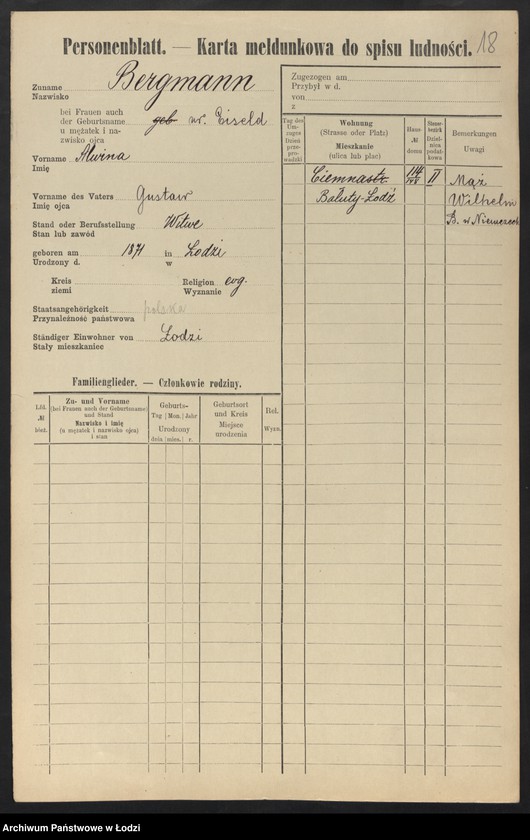 Personenblatt. — Karta meldunkowa do spisu ludności. 18
Zuname Bergmann
Nazwisko
bei Frauen auch
der Geburtsname geb ur. Eiseld
u mężatek i na-
zwisko ojca
Vorname Alwina
Imię
Vorname des Vaters Gustaw
Imię ojca
Stand oder Berufsstellung Witwe
Stan lub zawód
geboren am 1871 in Łodzi
Urodzony d. w
Kreis
ziemi
Religion ewg.
Wyznanie
Staatsangehörigkeit polska
Przynależność państwowa
Ständiger Einwohner von Łodzi
Stały mieszkaniec
Zugezogen am
Przybył w d.
von
z
Tag des
Um-
zuges
Dzień
prze-
prowadzki
Wohnung
(Strasse oder Platz)
Mieszkanie
(ulica lub plac)
Haus-
№
domu
Haus-
bezirk
Dziel-
nica
podat-
kowa
Bemerkungen
Uwagi
Ciemnastr. 114 II Mąż
Bałuty-Łodź Wilhelm
B. w Niemczech
Familienglieder. — Członkowie rodziny.
Lfd.
№
bież.
Zu- und Vorname
(bei Frauen auch der Geburtsname)
und Stand
Nazwisko i imię
(u mężatek i nazwisko ojca)
i stan
Geburts-
Tag Mon. Jahr
Urodzony
dnia mies. r.
Geburtsort
und Kreis
Miejsce
urodzenia
Rel.
Wyzn.
Archiwum Państwowe w Łodzi